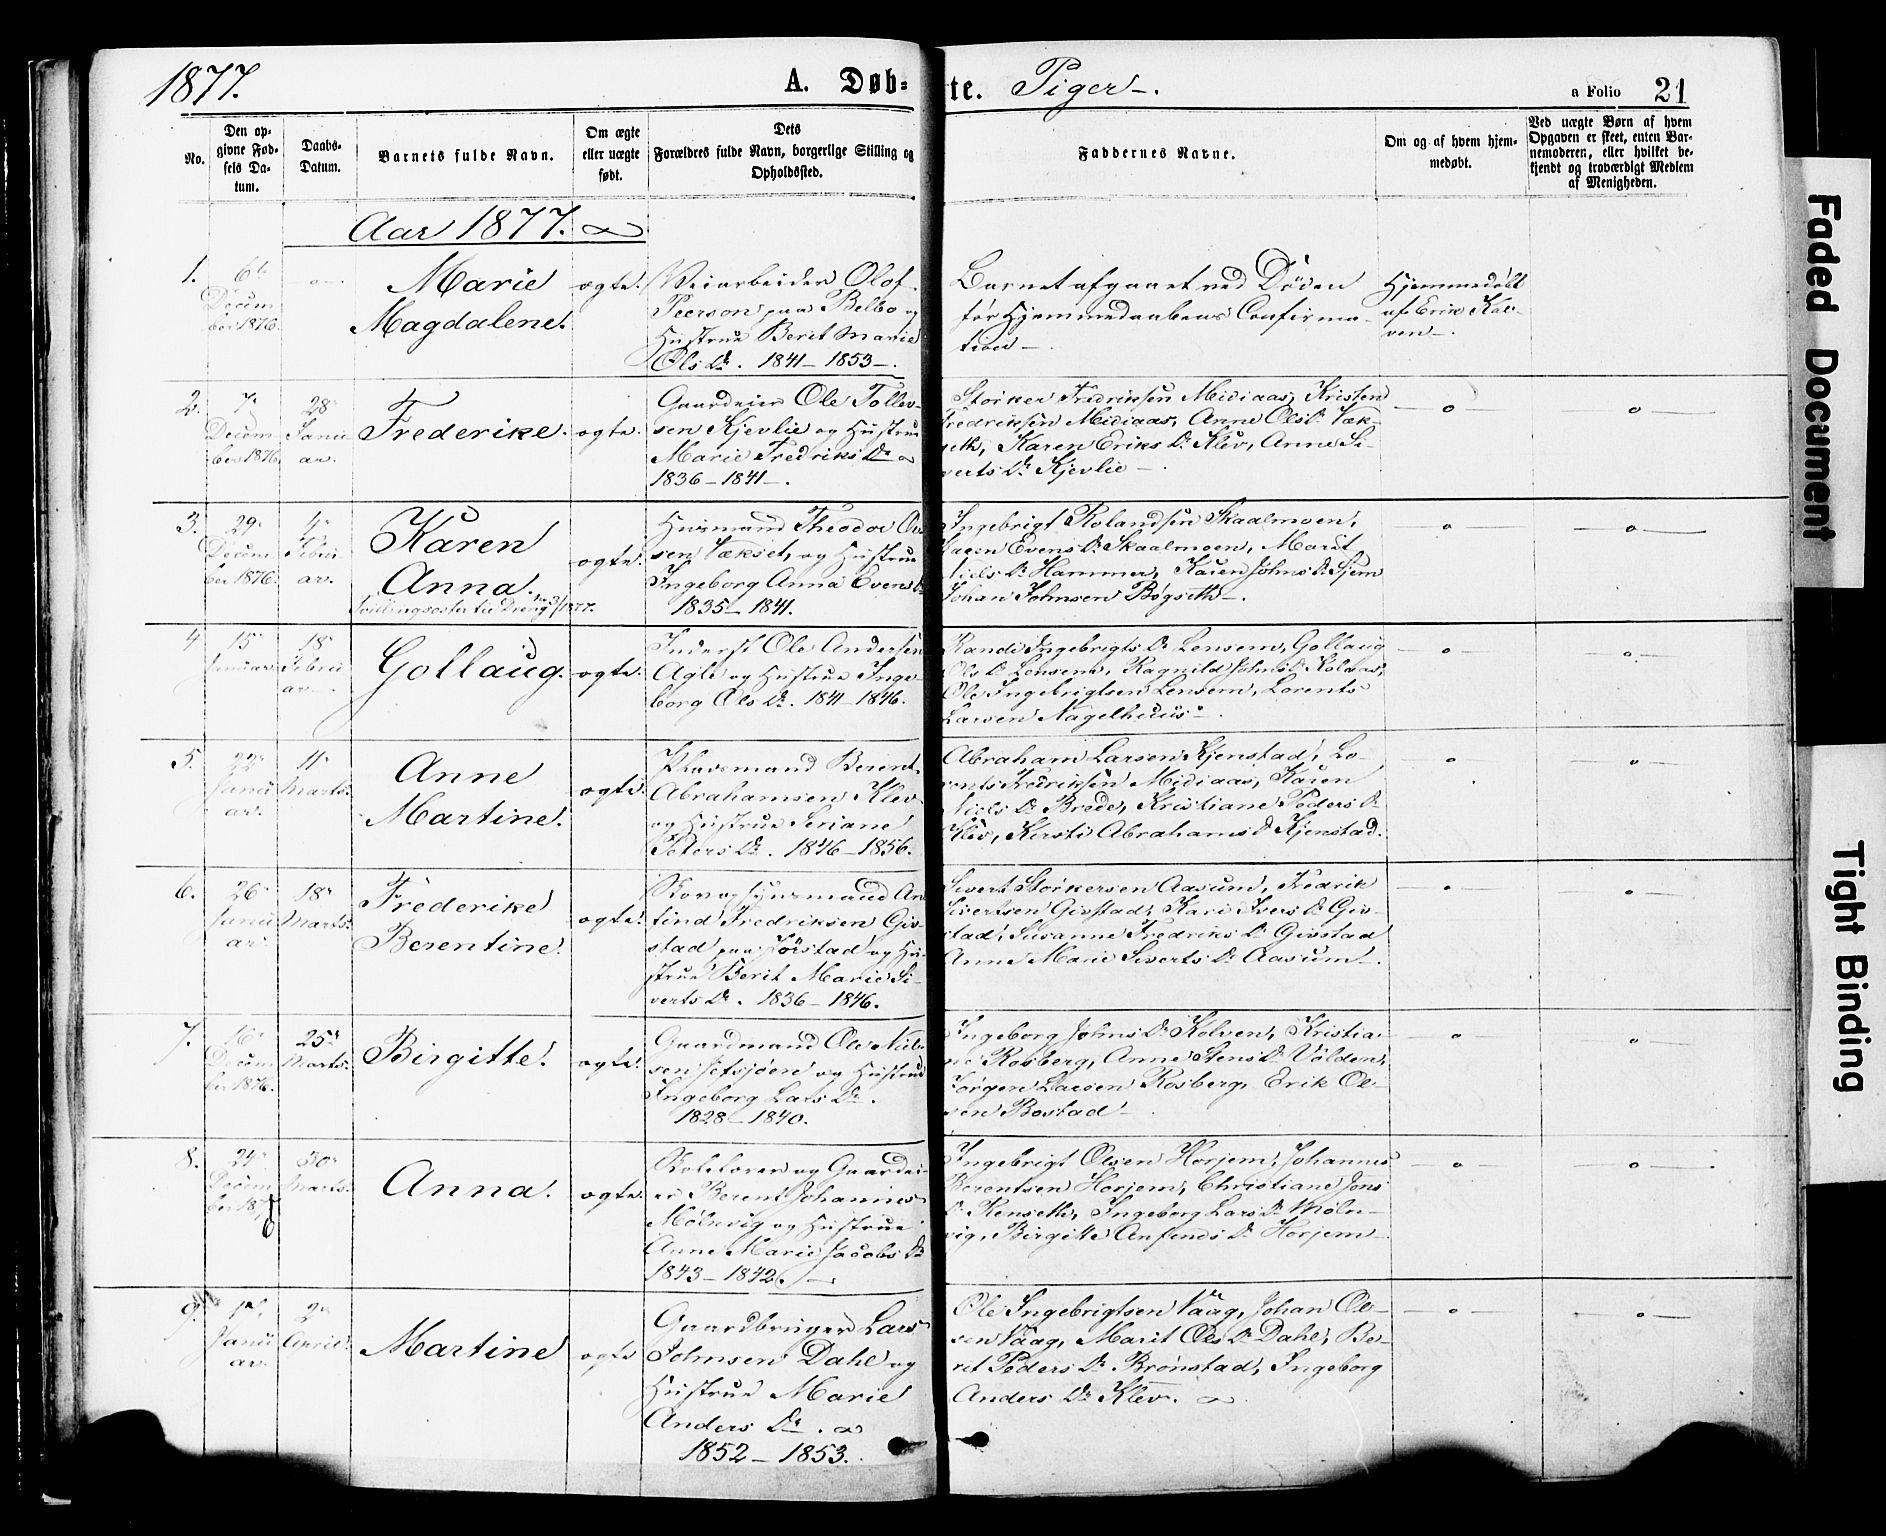 1877.
A. Døb=
te. Piger.
a Folio 21
No.
Den op-
givne Fød-
sels Da-
tum.
Daabs-
Datum.
Barnets fulde Navn.
Om ægte
eller uægte
født.
Dets
Forældres fulde Navn, borgerlige Stilling og
Opholdssted.
Faddernes Navne.
Om og af hvem hjem-
medøbt.
Ved uægte Børn af hvem
Opgaven er skeet, enten Bar-
nemoderen, eller hvilket be-
kjendt og troværdigt Medlem
af Menigheden.
Aar 1877.
1.
6te
Decem
ber 1876.
Marie
Magdalene.
ægte.
Veiarbeider Olof
Peerson paa Belbo og
Hustrue Berit Marie
Ols Dr. 1841 - 1853 -.
Barnet afgaaet ved Døden
før Hjemmedaabens Confirma-
tion -.
Hjemmedøbt
af Erik Kol-
ven -.
2.
7de
Decem
ber 1876.
28de
Janu
ar.
Frederike.
ægte.
Gaardeier Ole Tollev-
sen Kjevlie og Hustrue
Marie Fredriks Dr
1836 - 1841 -.
Storker Fredriksen Midiaas, Kristen
Fredriksen Midiaas, Anne Ols Dr Væk-
seth, Karen Eriks Dr Klev, Anne Si-
verts Dr Kjevlie -.
3.
29de
Decem
ber 1876.
4de
Febru
ar.
Karen
Anna.
Tvillingsøster til Dreng No 3/1877.
ægte.
Husmand Theodor Ol-
sen Vækset, og Hustrue
Ingeborg Anna Evens Dr
1835 - 1841.
Ingebrigt Rolandsen Skaalmoen,
Karen Evens Dr Skaalmoen, Marit
Niels Dr Hammer, Karen Johns Dr Sjem
Johan Johnsen Bøgseth -.
4
15de
Januar
18de
Febru
ar.
Gollaug.
ægte.
Inderst Ole Andersen
Agle og Hustrue Inge
borg Ols Dr. 1841 - 1846.
Randi Ingebrigts Dr Lensem, Gollaug
Ols Dr Lensem, Ragnild Johns Dr Kolaas,
Ole Ingebrigtsen Lensem, Lorents
Larsen Nagelhuus -.
5.
22de
Janu
ar.
11te
Marts.
Anne
Martine.
ægte.
Pladsmand Berent
Abrahamsen Klev
og Hustrue Seriane
Peters Dr. 1846 - 1856.
Abraham Larsen Kjenstad, Lo-
rents Fredriksen Midiaas, Karen
Niels Dr Brede, Kristiane Peders Dr
Klev, Kirsti Abrahams Dr Kjenstad.
6.
26de
Janu
ar.
18de
Marts.
Frederike
Berentine.
ægte.
Skov og Husmand An
find Fredriksen Giv-
stad paa Jørstad og Hu-
strue Berit Marie Si-
verts Dr. 1836 - 1846.
Sivert Storkersen Aasum, Fredrik
Sivertsen Givstad, Kari Ivers Dr Giv-
stad, Susanne Fredriks Dr Givstad
Anne Marie Siverts Dr Aasum.
7.
16de
Decem
ber 1876.
25de
Marts.
Birgitte.
ægte.
Gaardmand Ole Niel-
sen Sefsjøen og Hustrue
Ingeborg Lars Dr.
1828 - 1840.
Ingeborg Johns Dr Kolven, Kristia-
ne Rosberg, Anne Stens Dr Volden,
Jørgen Larsen Rosberg, Erik Ol-
sen Bostad -.
8.
24de
Decem
ber 1876
30de
Marts.
Anna.
ægte.
Skolelærer og Gaardei-
er Berent Johannes
Mølnvig og Hustrue
Anne Marie Jacobs Dr
1843 - 1842. -
Ingebrigt Olsen Horjem, Johannes
Berentsen Horjem, Christiane Jons
Dr Kenseth, Ingeborg Lars Dr Møln-
vig, Birgitte Anfinds Dr Horjem -
9.
1ste
Janu
ar.
2de
April.
Martine
ægte
Gaardbruger Lars
Johnsen Dahl og
Hustrue Marie
Anders Dr.
1852 - 1853.
Ole Ingebrigtsen Vaag, Johan Ol-
sen Vaag, Marit Ols Dr Dahl, Be-
rit Peders Dr Brønstad, Ingeborg
Anders Dr Klev.
Faded Document
Tight Binding